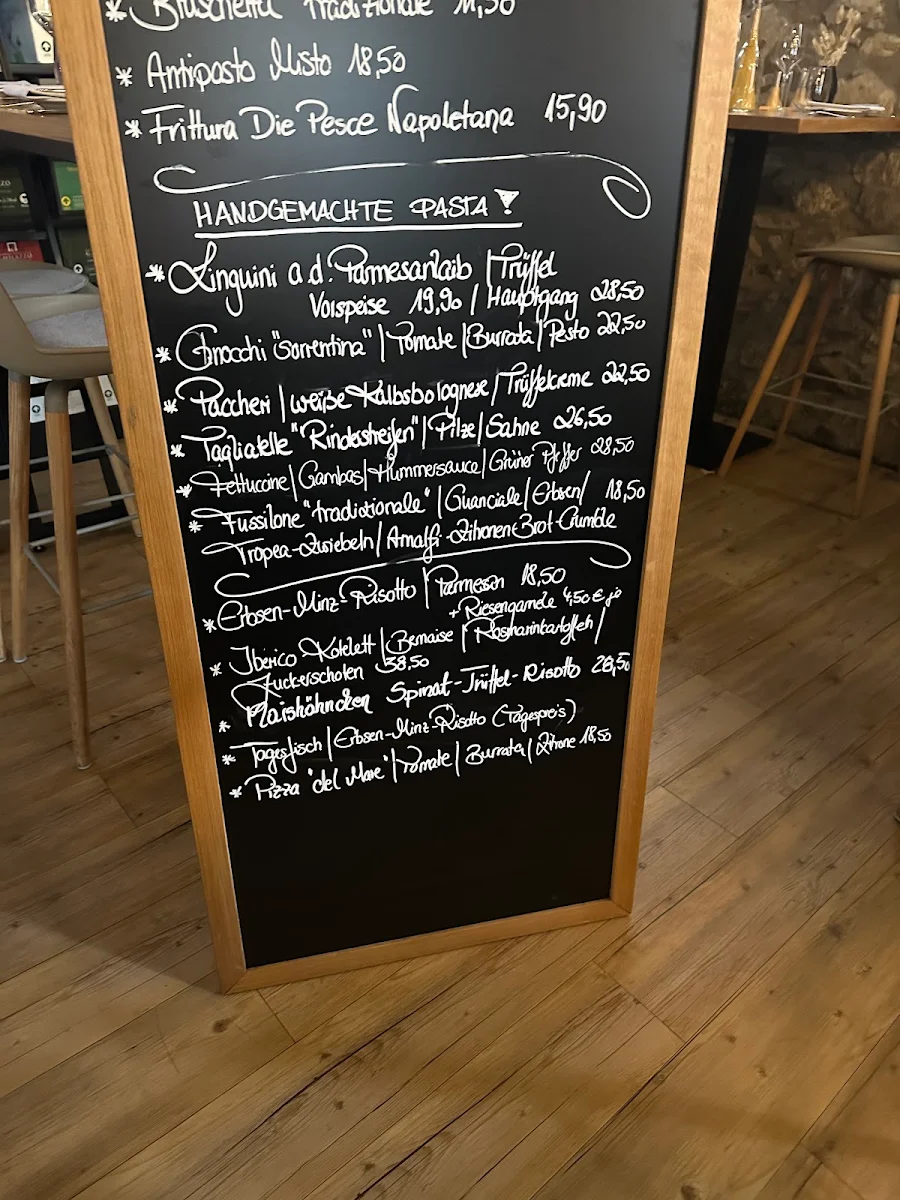 * Bruschetta Tradizionale 11,50
* Antipasto Misto 18,50
* Frittura Die Pesce Napoletana 15,90
HANDGEMACHTE PASTA!
* Linguini a.d. Parmesanlaib | Trüffel
Vorspeise 19,90 | Hauptgang 28,50
* Gnocchi "Sorrentina" | Tomate | Burrata | Pesto 22,50
* Paccheri | weiße Kalbsbolognese | Trüffelcreme 22,50
* Tagliatelle "Rinderstreifen" | Pilze | Sahne 26,50
* Fettuccine | Gambas | Hummersauce | Grüner Pfeffer 28,50
* Fussilone "tradizionale" | Guanciale | Erbsen | 18,50
Tropea-Zwiebeln | Amalfi-Zitronen-Brot-Crumble
* Erbsen-Minz-Risotto | Parmesan 18,50
+ Riesengarnele 4,50 € je
* Iberico Kotelett | Bernaise | Rosmarinkartoffeln |
Zuckerschoten 38,50
* Maishähnchen Spinat-Trüffel-Risotto 28,50
* Tagesfisch | Erbsen-Minz-Risotto (Tagespreis)
* Pizza "del Mare" | Tomate | Burrata | Zitrone 18,50